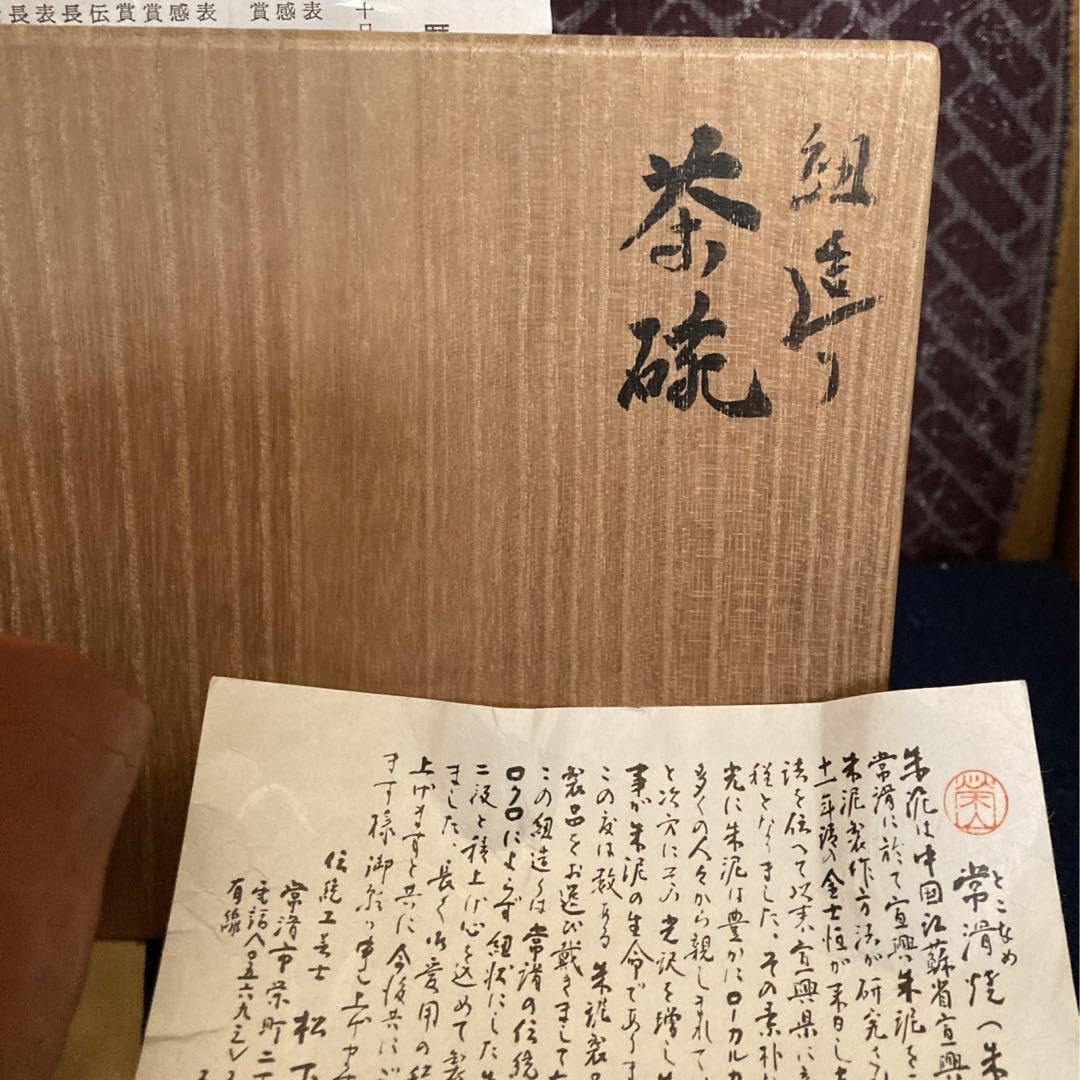 表感賞
表感賞賞伝長表長
紐造り
茶碗
とこなめ
常滑焼(朱
朱泥は中国江蘇省宜興
常滑に於て宜興朱泥を
朱泥製作方法が研究さ
十一年清の金士恒が来日し
法を伝へて以来宜興県に
程となりました。その素朴
光に朱泥は豊かにローカルカ
多くの人々から親しまれて、
と次穴に工の光沢を増し
事が朱泥の生命であります
この度は数ある朱泥製
製品をお選び戴きまして
この紐造りは常滑の伝統
ロクロによらず紐状にした
二段と積上げ心を込めて製
ました、長く御愛用の程
上げますと共に今後共に
ます様御願い申し上げ
伝統工芸士 松下
常滑市栄町二丁
電話〈〇五六九三〉
有線